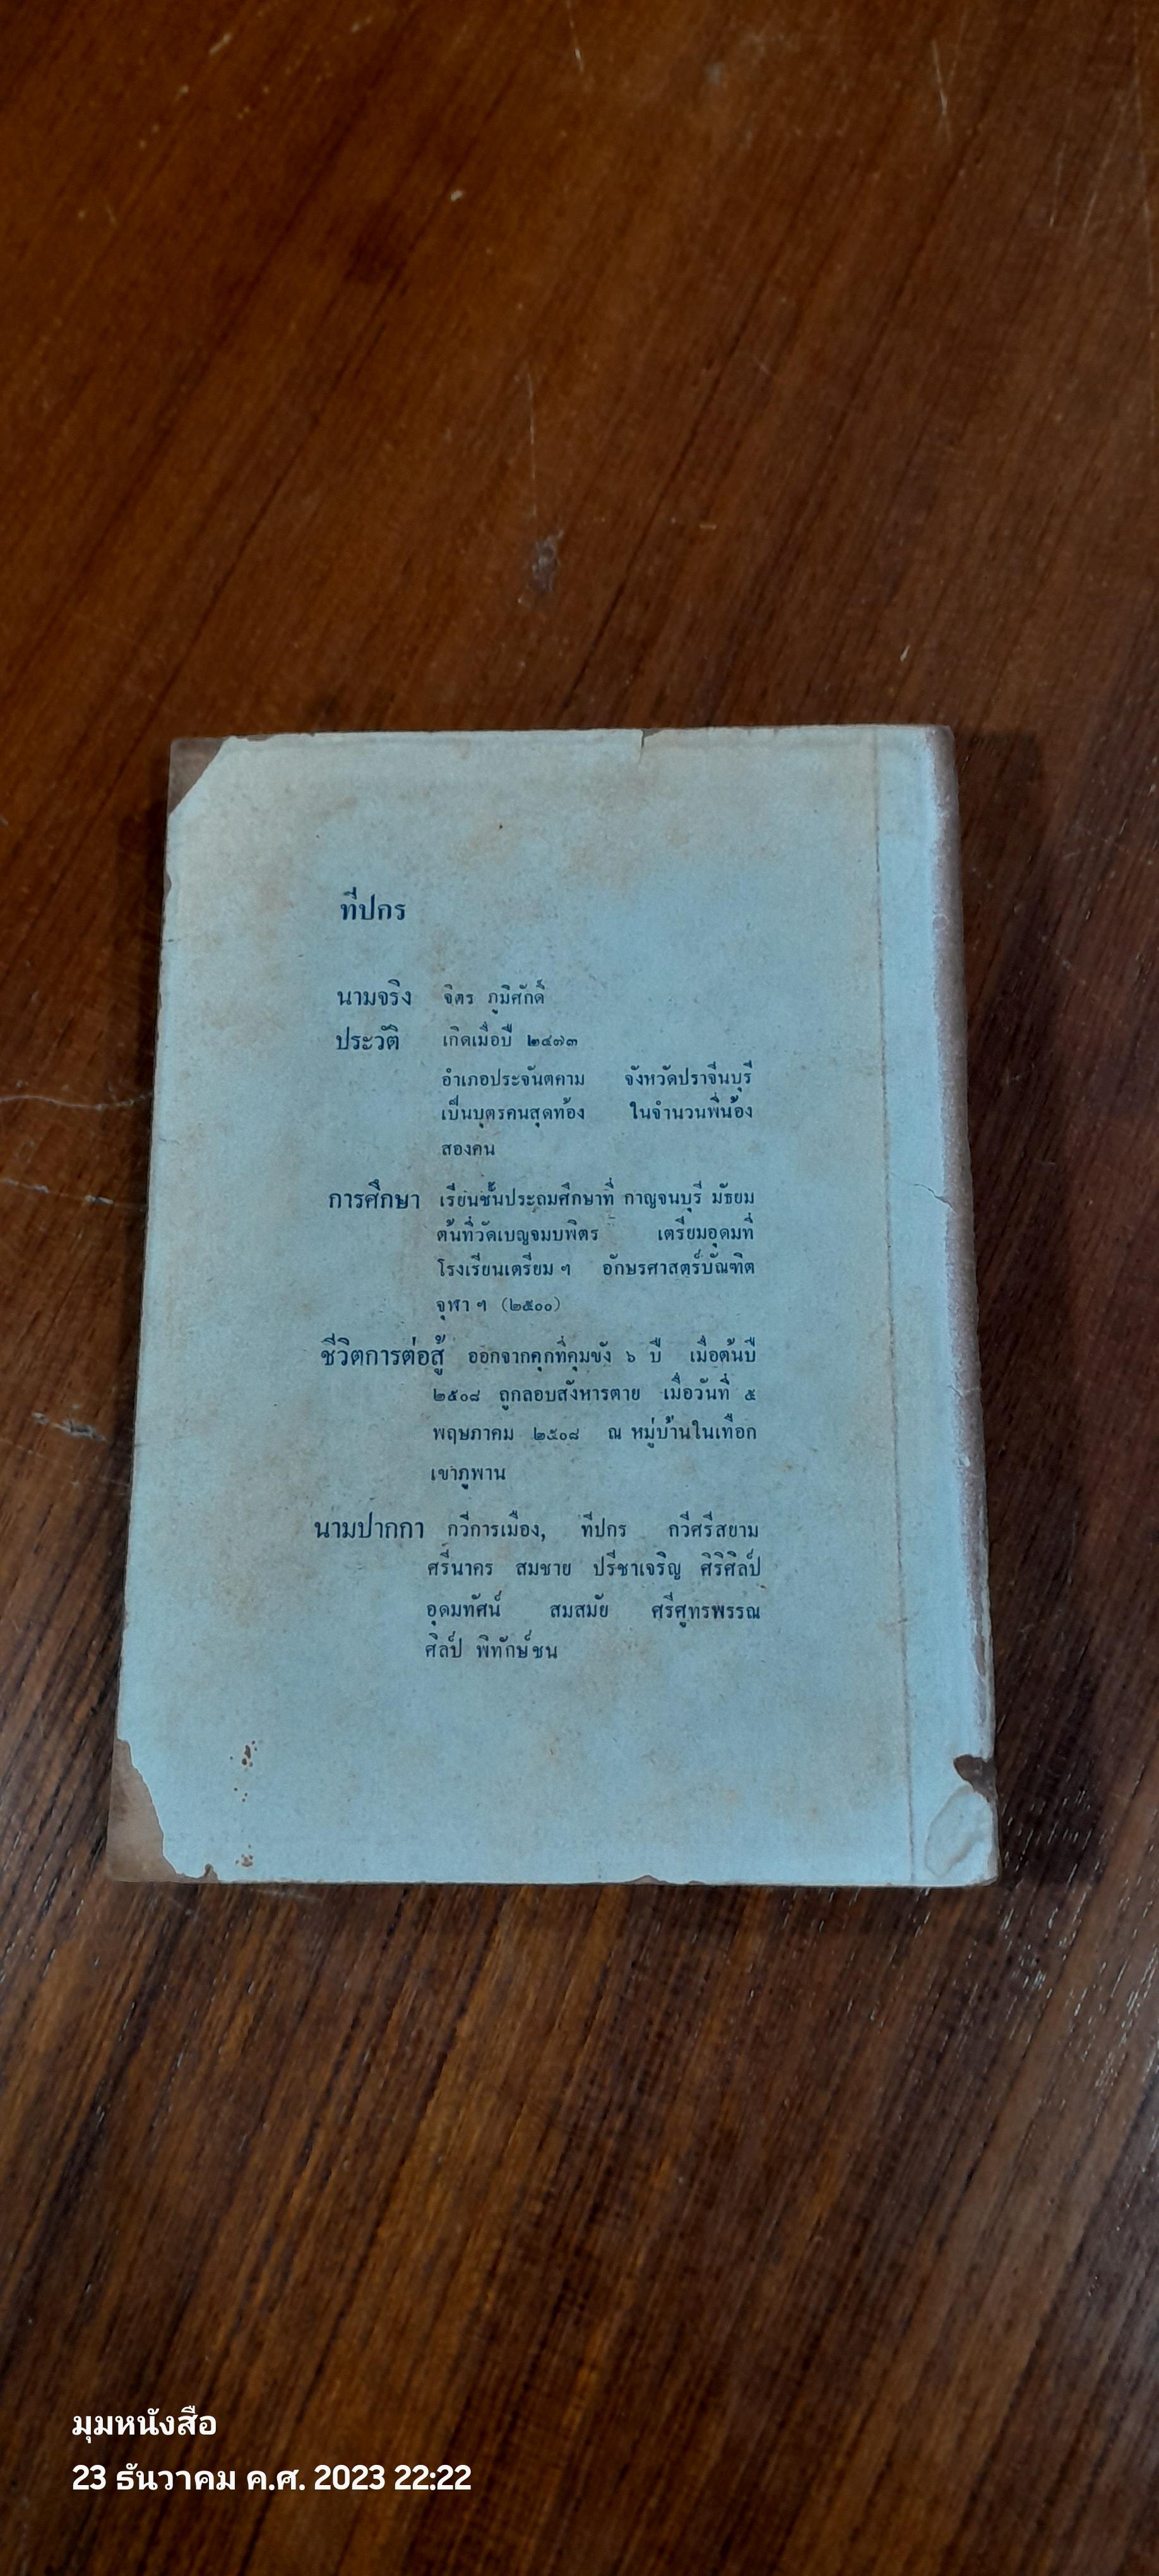 ทีปกร
นามจริง จิตร ภูมิศักดิ์
ประวัติ เกิดเมื่อปี ๒๔๗๓
อำเภอประจันตคาม จังหวัดปราจีนบุรี
เป็นบุตรคนสุดท้อง ในจำนวนพี่น้อง
สองคน
การศึกษา เรียนชั้นประถมศึกษาที่ กาญจนบุรี มัธยม
ต้นที่วัดเบญจมบพิตร เตรียมอุดมที่
โรงเรียนเตรียม ฯ อักษรศาสตร์บัณฑิต
จุฬา ฯ (๒๕๐๐)
ชีวิตการต่อสู้ ออกจากคุกที่คุมขัง ๖ ปี เมื่อต้นปี
๒๕๐๘ ถูกลอบสังหารตาย เมื่อวันที่ ๕
พฤษภาคม ๒๕๐๘ ณ หมู่บ้านในเทือก
เขาภูพาน
นามปากกา กวีการเมือง, ทีปกร กวีศรีสยาม
ศรีนาคร สมชาย ปรีชาเจริญ ศิริศิลป์
อุดมทัศน์ สมสมัย ศรีศูทรพรรณ
ศิลป์ พิทักษ์ชน
มุมหนังสือ
23 ธันวาคม ค.ศ. 2023 22:22